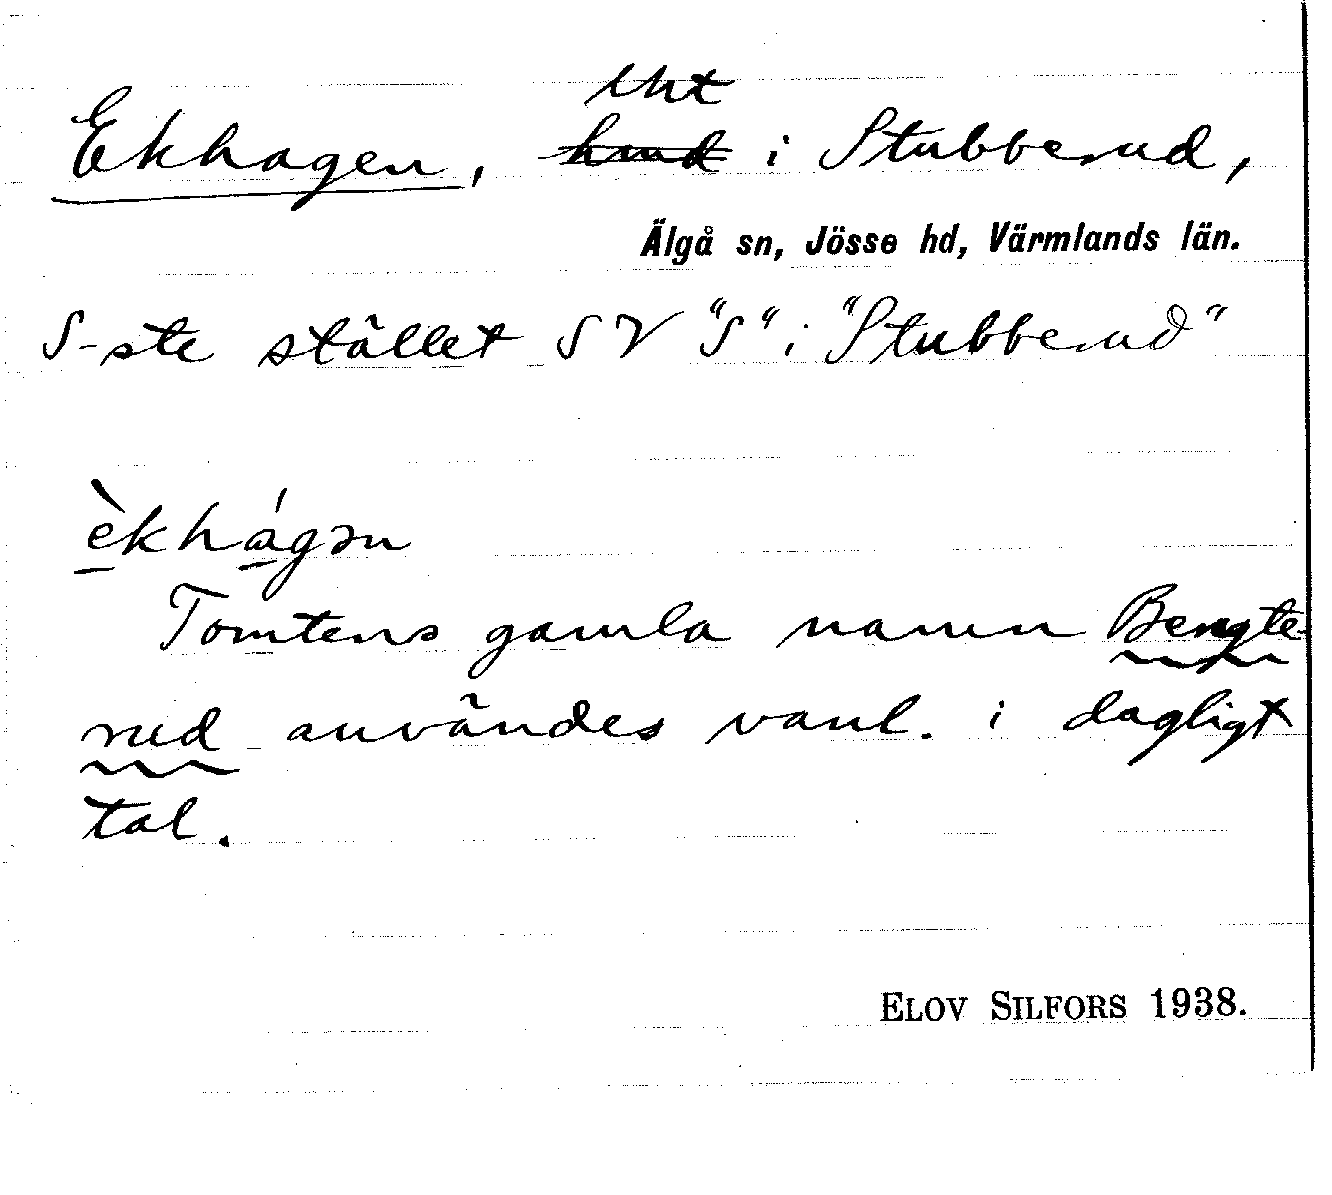 Ekhagen, lht i Stubberud,
Älgå sn, Jösse hd, Värmlands län.
S-ste stället SV "S" i "Stubberud"
èkhágən
Tomtens gamla namn Bengte-
rud användes vanl. i dagligt
tal.
ELOV SILFORS 1938.